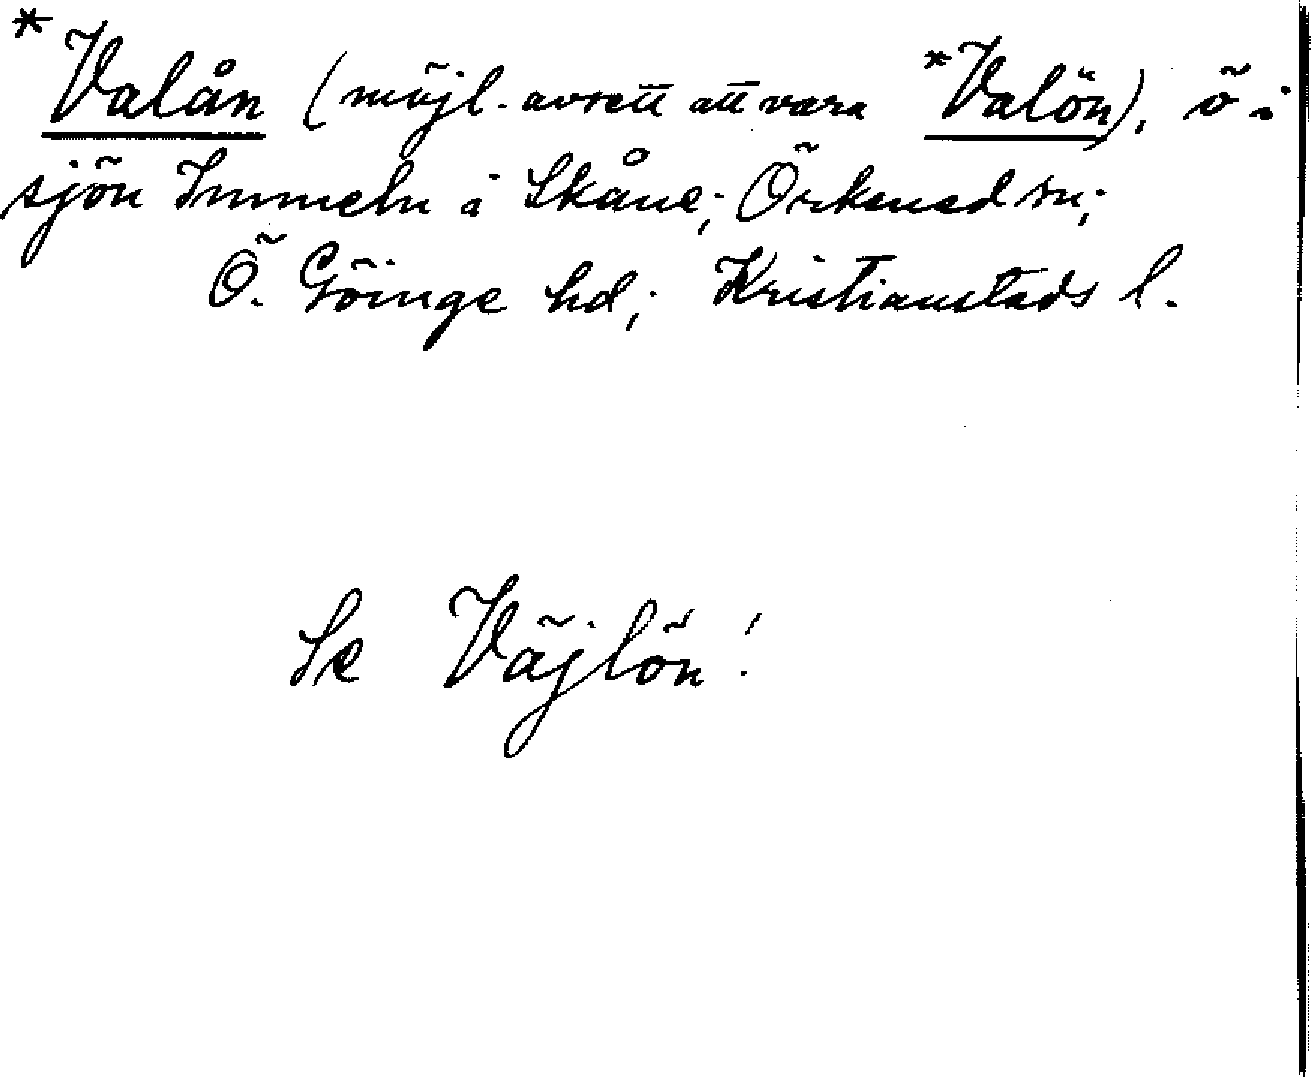 *Valån (möjl. avsett att vara *Valön), ö i
sjön Immeln i Skåne; Örkened sn;
Ö. Göinge hd; Kristianstads l.
Se Väjlön!